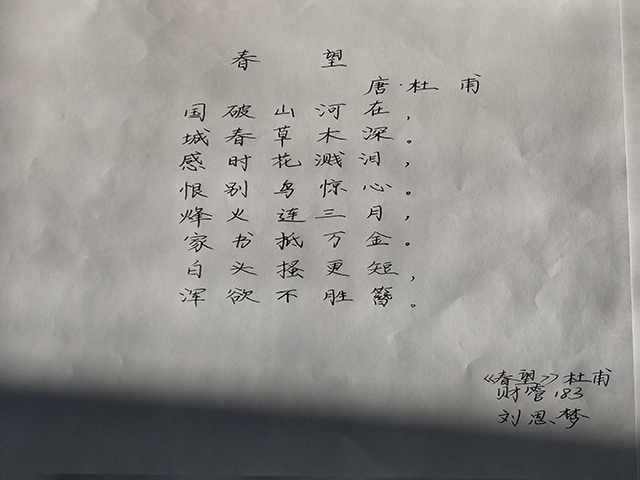 春望
唐·杜甫
国破山河在，
城春草木深。
感时花溅泪，
恨别鸟惊心。
烽火连三月，
家书抵万金。
白头搔更短，
浑欲不胜簪。
《春望》杜甫
财管183
刘思梦